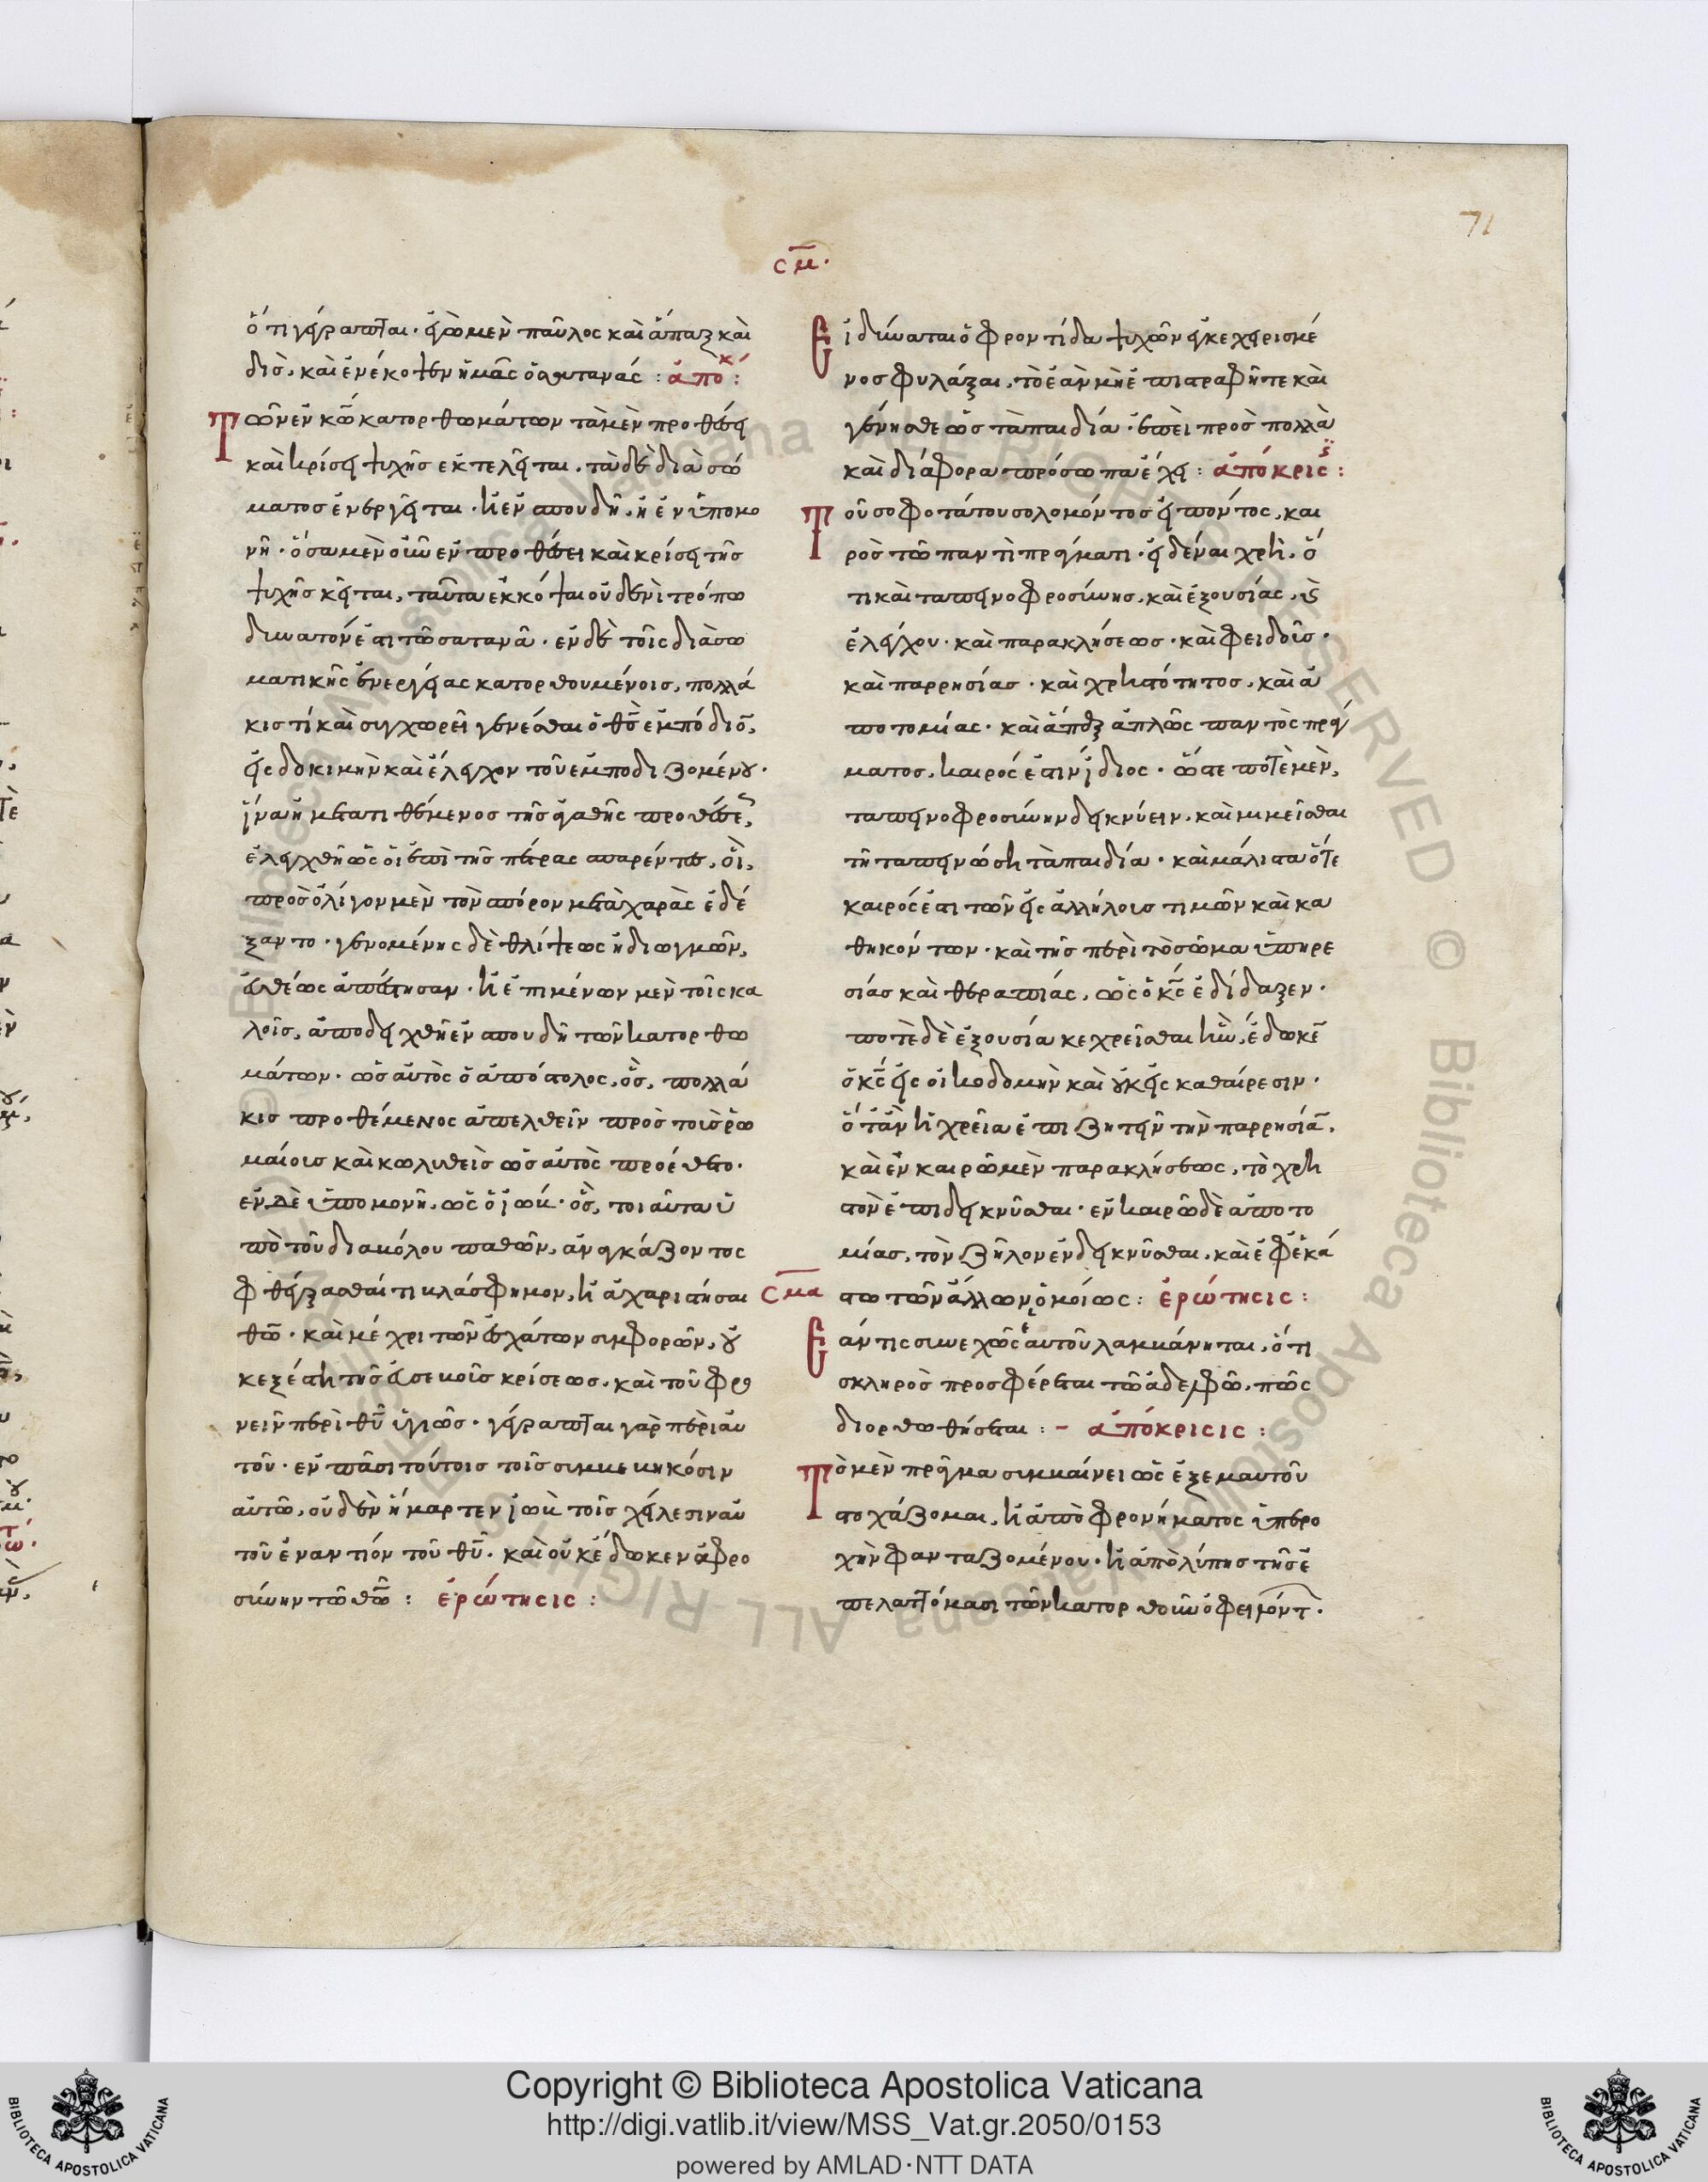 71
σμ·
ὅτι γέγραπται· ἐγὼ μὲν παῦλος καὶ ἅπαξ καὶ
δὶσ, καὶ ἐνέκοψεν ἡμᾶς ὁ σατανάς : ἀπόκ :
Τῶν ἐν κω κατορθωμάτων τὰ μὲν προθέσει
καὶ κρίσει ψυχῆς ἐκτελεῖται, τὰ δὲ διὰ σώ
ματος ἐνεργεῖται· ἢ ἐν σπουδῆ, ἢ ἐν ὑπομο
νῆ· ὅσα μὲν οὖν ἐν προθέσει καὶ κρίσει τῆς
ψυχῆς κεῖται, ταῦτα ἐκκόψαι οὐδενὶ τρόπω
δυνατόν ἐστι τῶ σατανᾶ· ἐν δὲ τοῖς διὰ σω
ματικῆς ἐνεργείας κατορθουμένοις, πολλά
κις τί καὶ συγχωρεῖ γενέσθαι ὁ θς ἐμπόδιον,
εἰς δοκιμὴν καὶ ἔλεγχον τοῦ ἐμποδιζομένου·
ἵνα ἢ μετατιθέμενος τῆς ἀγαθῆς προθέσε,
ἐλεγχθῆ ὡς οἱ ἐπὶ τῆς πέτρας σπαρέντες, οἳ,
πρὸς ὀλίγον μὲν τὸν σπόρον μετὰ χαρὰς ἐδέ
ξαντο· γενομένης δὲ θλίψεως ἢ διωγμῶν,
εὐθέως ἀπέστησαν· ἢ ἐπιμένων μὲν τοῖς κα
λοῖς, ἀποδειχθῆ ἐν σπουδῆ τῶν κατορθω
μάτων· ὡς αὐτὸς ὁ ἀπόστολος, ὃς, πολλά
κις προθέμενος ἀπελθεῖν πρὸς τοὺς ρω
μαίους καὶ κωλυθεὶς ὡς αὐτὸς προέθετο·
ἐν δὲ ὑπομονῆ, ὡς ὁ ἰώβ· ὃς, τοιαῦτα ὑ
πὸ τοῦ διαβόλου παθὼν, ἀναγκάζοντος
φθέγξασθαί τι βλάσφημον, ἢ ἀχαριστῆσαι
θω· καὶ μέχρι τῶν ἐσχάτων συμφορῶν, οὐ
κ ἐξέστη τῆς εὐσεβοῦς κρίσεως, καὶ τοῦ φρο
νεῖν περὶ θυ ὑγιῶς· γέγραπται γὰρ περὶ αὐ
τοῦ· ἐν πᾶσι τούτοις τοῖς συμβεβηκόσιν
αὐτῶ, οὐδὲν ἥμαρτεν ἰὼβ τοῖς χείλεσιν αὐ
τοῦ ἐναντίον τοῦ θυ· καὶ οὐκ ἔδωκεν ἀφρο
σύνην τῶ θω : ἐρώτησις :
Εἰ δύναται ὁ φροντίδα ψυχῶν ἐγκεχειρισμέ
νος φυλάξαι, τὸ ἐὰν μὴ ἐπιστραφῆτε καὶ
γένησθε ὡς τὰ παιδία· ἐπεὶ πρὸς πολλὰ
καὶ διάφορα πρόσωπα ἔχει : ἀπόκρισ :
Τοῦ σοφοτάτου σολομόντος εἰπόντος, και
ρὸς τῶ παντὶ πράγματι· εἰδέναι χρὴ, ὅ
τι καὶ ταπεινοφροσύνης, καὶ ἐξουσίας, καὶ
ἐλέγχου· καὶ παρακλήσεως· καὶ φειδοῦς·
καὶ παρρησίας· καὶ χρηστότητος, καὶ ἀ
ποτομίας· καὶ ἅπαξ ἁπλῶς παντὸς πράγ
ματος, καιρός ἐστιν ἴδιος· ὥστε ποτὲ μὲν,
ταπεινοφροσύνην δεικνύειν, καὶ μιμεῖσθαι
τῆ ταπεινώσει τὰ παιδία· καὶ μάλιστα ὅτε
καιρός ἐστι τῶν εἰς ἀλλήλους τιμῶν καὶ κα
θηκόντων· καὶ τῆς περὶ τὸ σῶμα ὑπηρε
σίας καὶ θεραπείας, ὡς ὁ κς ἐδίδαξεν·
ποτὲ δὲ ἐξουσία κεχρεῖσθαι ἣν, ἔδωκεν
ὁ κς εἰς οἰκοδομὴν καὶ οὐκ εἰς καθαίρεσιν·
ὅταν ἡ χρεῖα ἐπιζητεῖν τὴν παρρησίαν,
καὶ ἐν καιρῶ μὲν παρακλήσεως, τὸ χρη
στὸν ἐπιδεικνῦσθαι· ἐν καιρῶ δὲ ἀποτο
μίας, τὸν ζῆλον ἐνδεικνῦσθαι, καὶ ἐφ' ἑκά
σμα στω τῶν ἄλλων ὁμοίως : ἐρώτησις :
Ἐάν τις συνεχῶς ἑαυτοῦ λαμβάνηται, ὅτι
σκληρὸς προσφέρεται τῶ ἀδελφῶ, πῶς
διορθωθήσεται : – ἀπόκρισις :
Τὸ μὲν πρᾶγμα συμβαίνει ὡς ἐξ ἐμαυτοῦ
στοχάζομαι, ἢ ἀπὸ φρονήματος ὑπερο
χὴν φανταζομένου· ἢ ἀπὸ λύπης τῆς ἐ
π' ἐλαττόμασι τῶν κατορθοῦν ὀφειλόντ·
Copyright © Biblioteca Apostolica Vaticana
http://digi.vatlib.it/view/MSS_Vat.gr.2050/0153
powered by AMLAD·NTT DATA
BIBLIOTECA APOSTOLICA VATICANA
BIBLIOTECA APOSTOLICA VATICANA